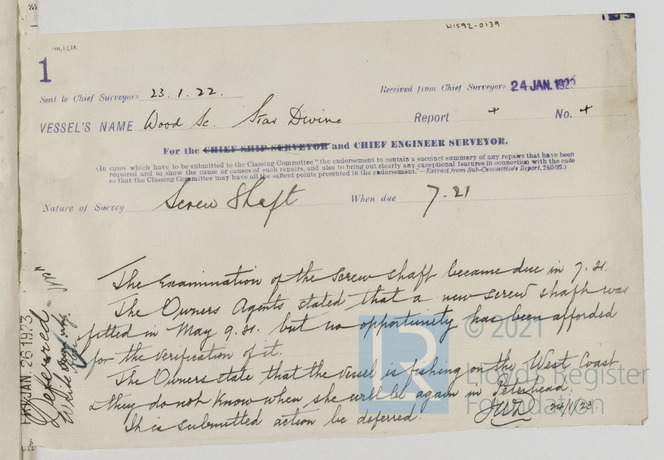 W1592-0139
1
Sent to Chief Surveyors 23.1.22.
Received from Chief Surveyors 24 JAN. 1923
VESSEL'S NAME Wood Sc. Star Divine Report + No. +
For the CHIEF SHIP SURVEYOR and CHIEF ENGINEER SURVEYOR.
(In cases which have to be submitted to the Classing Committee "the endorsement to contain a succinct summary of any repairs that have been
required and to show the cause or causes of such repairs, and also to bring out clearly any exceptional features in connection with the case
so that the Classing Committee may have all the salient points presented in the endorsement."—Extract from Sub-Committee's Report,
Nature of Survey Screw Shaft When due 7.21
The Examination of the screw shaft became due in 7.21.
The Owners Agents stated that a new screw shaft was
fitted in May 9.21. but no opportunity has been afforded
for the verification of it.
The Owners state that the vessel is fishing on the West Coast
& they do not know when she will be again in Peterhead.
It is submitted action be deferred.
24/1/23
FRI. JAN. 26 1923
Deferred
© 2021
LR
Lloyd's Register
Foundation